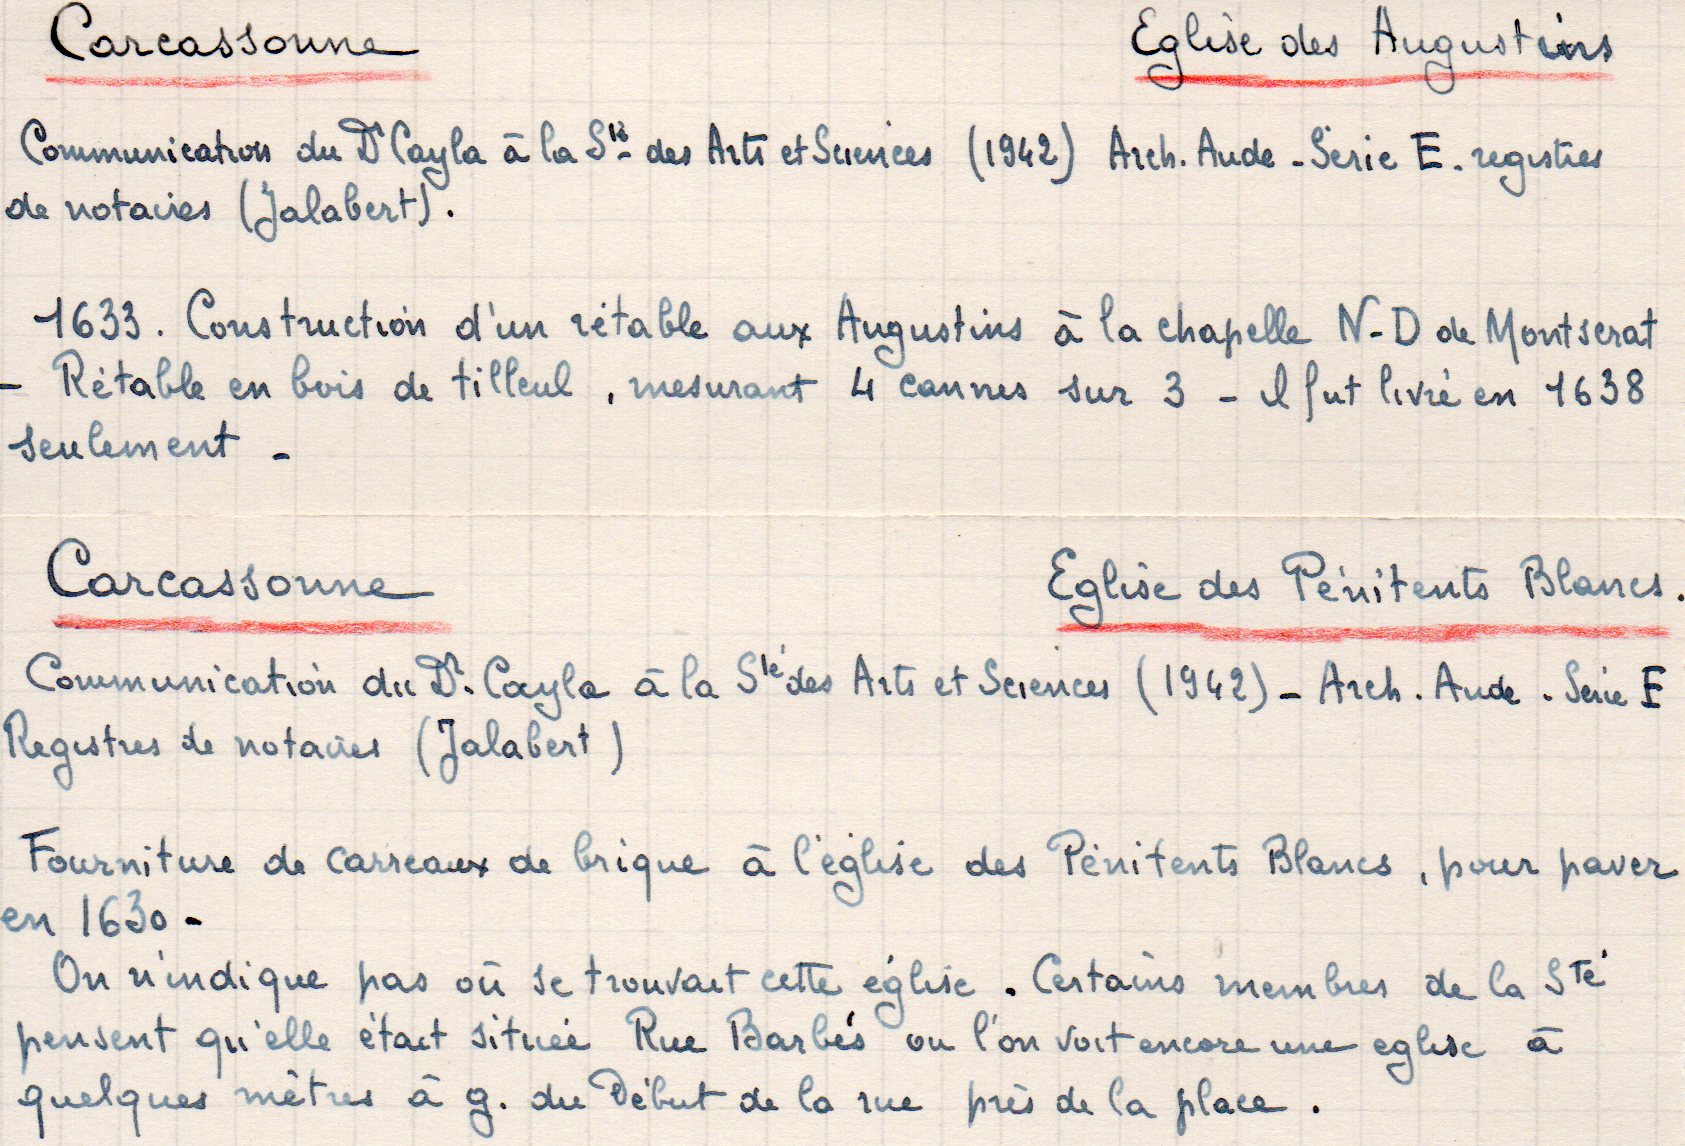 Carcassonne Eglise des Augustins
Communication du Dr Cayla à la Sté des Arts et Sciences (1942) Arch. Aude - Série E. registres
de notaires (Jalabert).
1633. Construction d'un rétable aux Augustins à la chapelle N-D de Montserat
- Rétable en bois de tilleul, mesurant 4 cannes sur 3 - il fut livré en 1638
seulement -
Carcassonne Eglise des Pénitents Blancs.
Communication du Dr. Cayla à la Sté des Arts et Sciences (1942) - Arch. Aude. Série E
Registres de notaires (Jalabert)
Fourniture de carreaux de brique à l'église des Pénitents Blancs, pour paver
en 1630 -
On n'indique pas où se trouvait cette église. Certains membres de la Sté
pensent qu'elle était située Rue Barbés ou l'on voit encore une eglise à
quelques mètres à g. du Début de la rue près de la place.